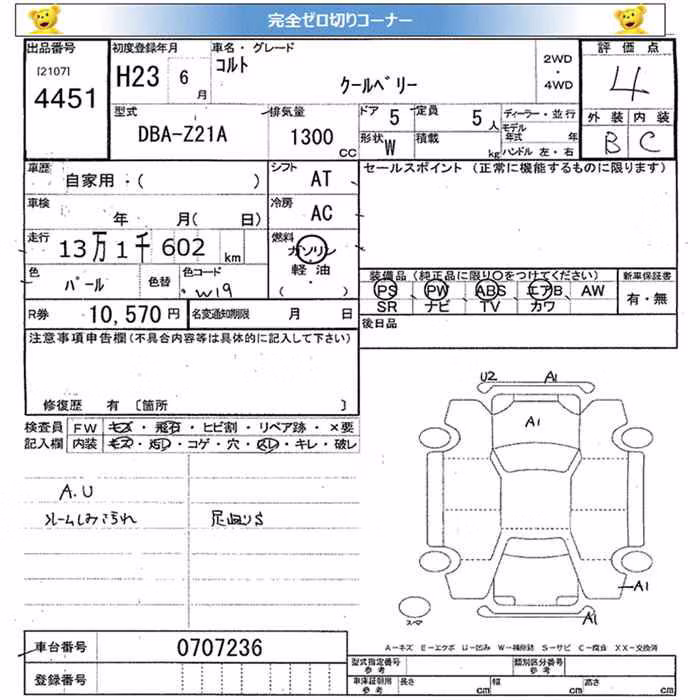 完全ゼロ切りコーナー
出品番号
[2107]
4451
初度登録年月
H23 6 月
車名・グレード
コルト
クールベリー
2WD
・
4WD
評価点
4
外装 内装
B C
型式
DBA-Z21A
排気量
1300 CC
ドア 5
定員 5 人
形状 W
積載 kg
ディーラー・並行
モデル年式 年
ハンドル 左・右
車歴
自家用・( )
シフト AT
セールスポイント (正常に機能するものに限ります)
車検 年 月( 日)
冷房 AC
走行 13万1千602 km
燃料
ガソリン
軽・油
( )
色 パール
色替
色コード W19
装備品(純正品に限り○をつけてください)
PS PW ABS エアB AW
SR ナビ TV カワ
新車保証書
有・無
R券 10,570 円
名変通知期限 月 日
後日品
注意事項申告欄(不具合内容等は具体的に記入して下さい)
修復歴 有 〔箇所 〕
検査員 FW キズ・飛石・ヒビ割・リペア跡・×要
記入欄 内装 キズ・汚レ・コゲ・穴・スレ・キレ・破レ
A.U
足回りS
U2 A1
A1
A1
A1
スペア
A=キズ E=エクボ U=凹み W=補修跡 S=サビ C=腐食 XX=交換済
車台番号 0707236
登録番号
型式指定番号 参考
類別区分番号 参考
車庫証明用 参考
長さ cm 幅 cm 高さ cm